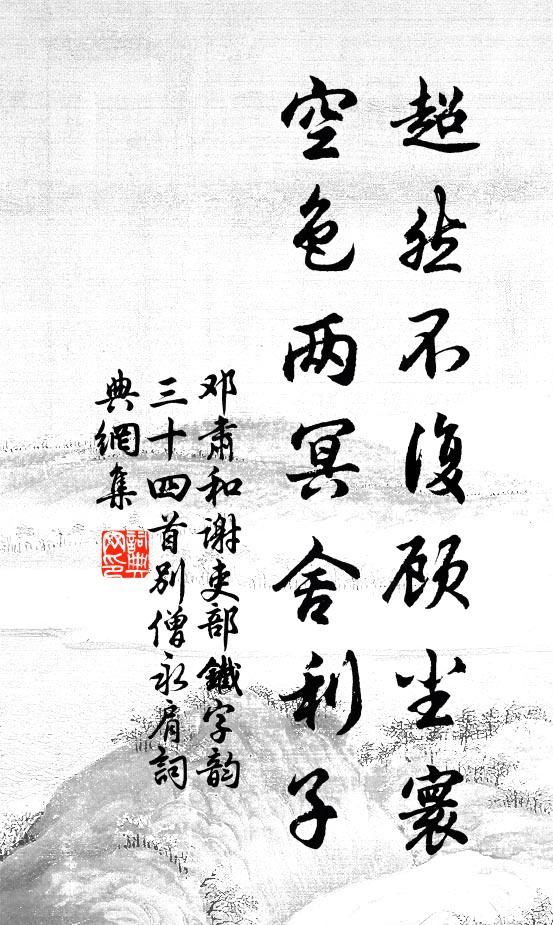 超然不復顾尘寰
空色两冥舍利子
邓肃和谢吏部鐵字韵
三十四首别僧永肩詞
典網集
詞典网印